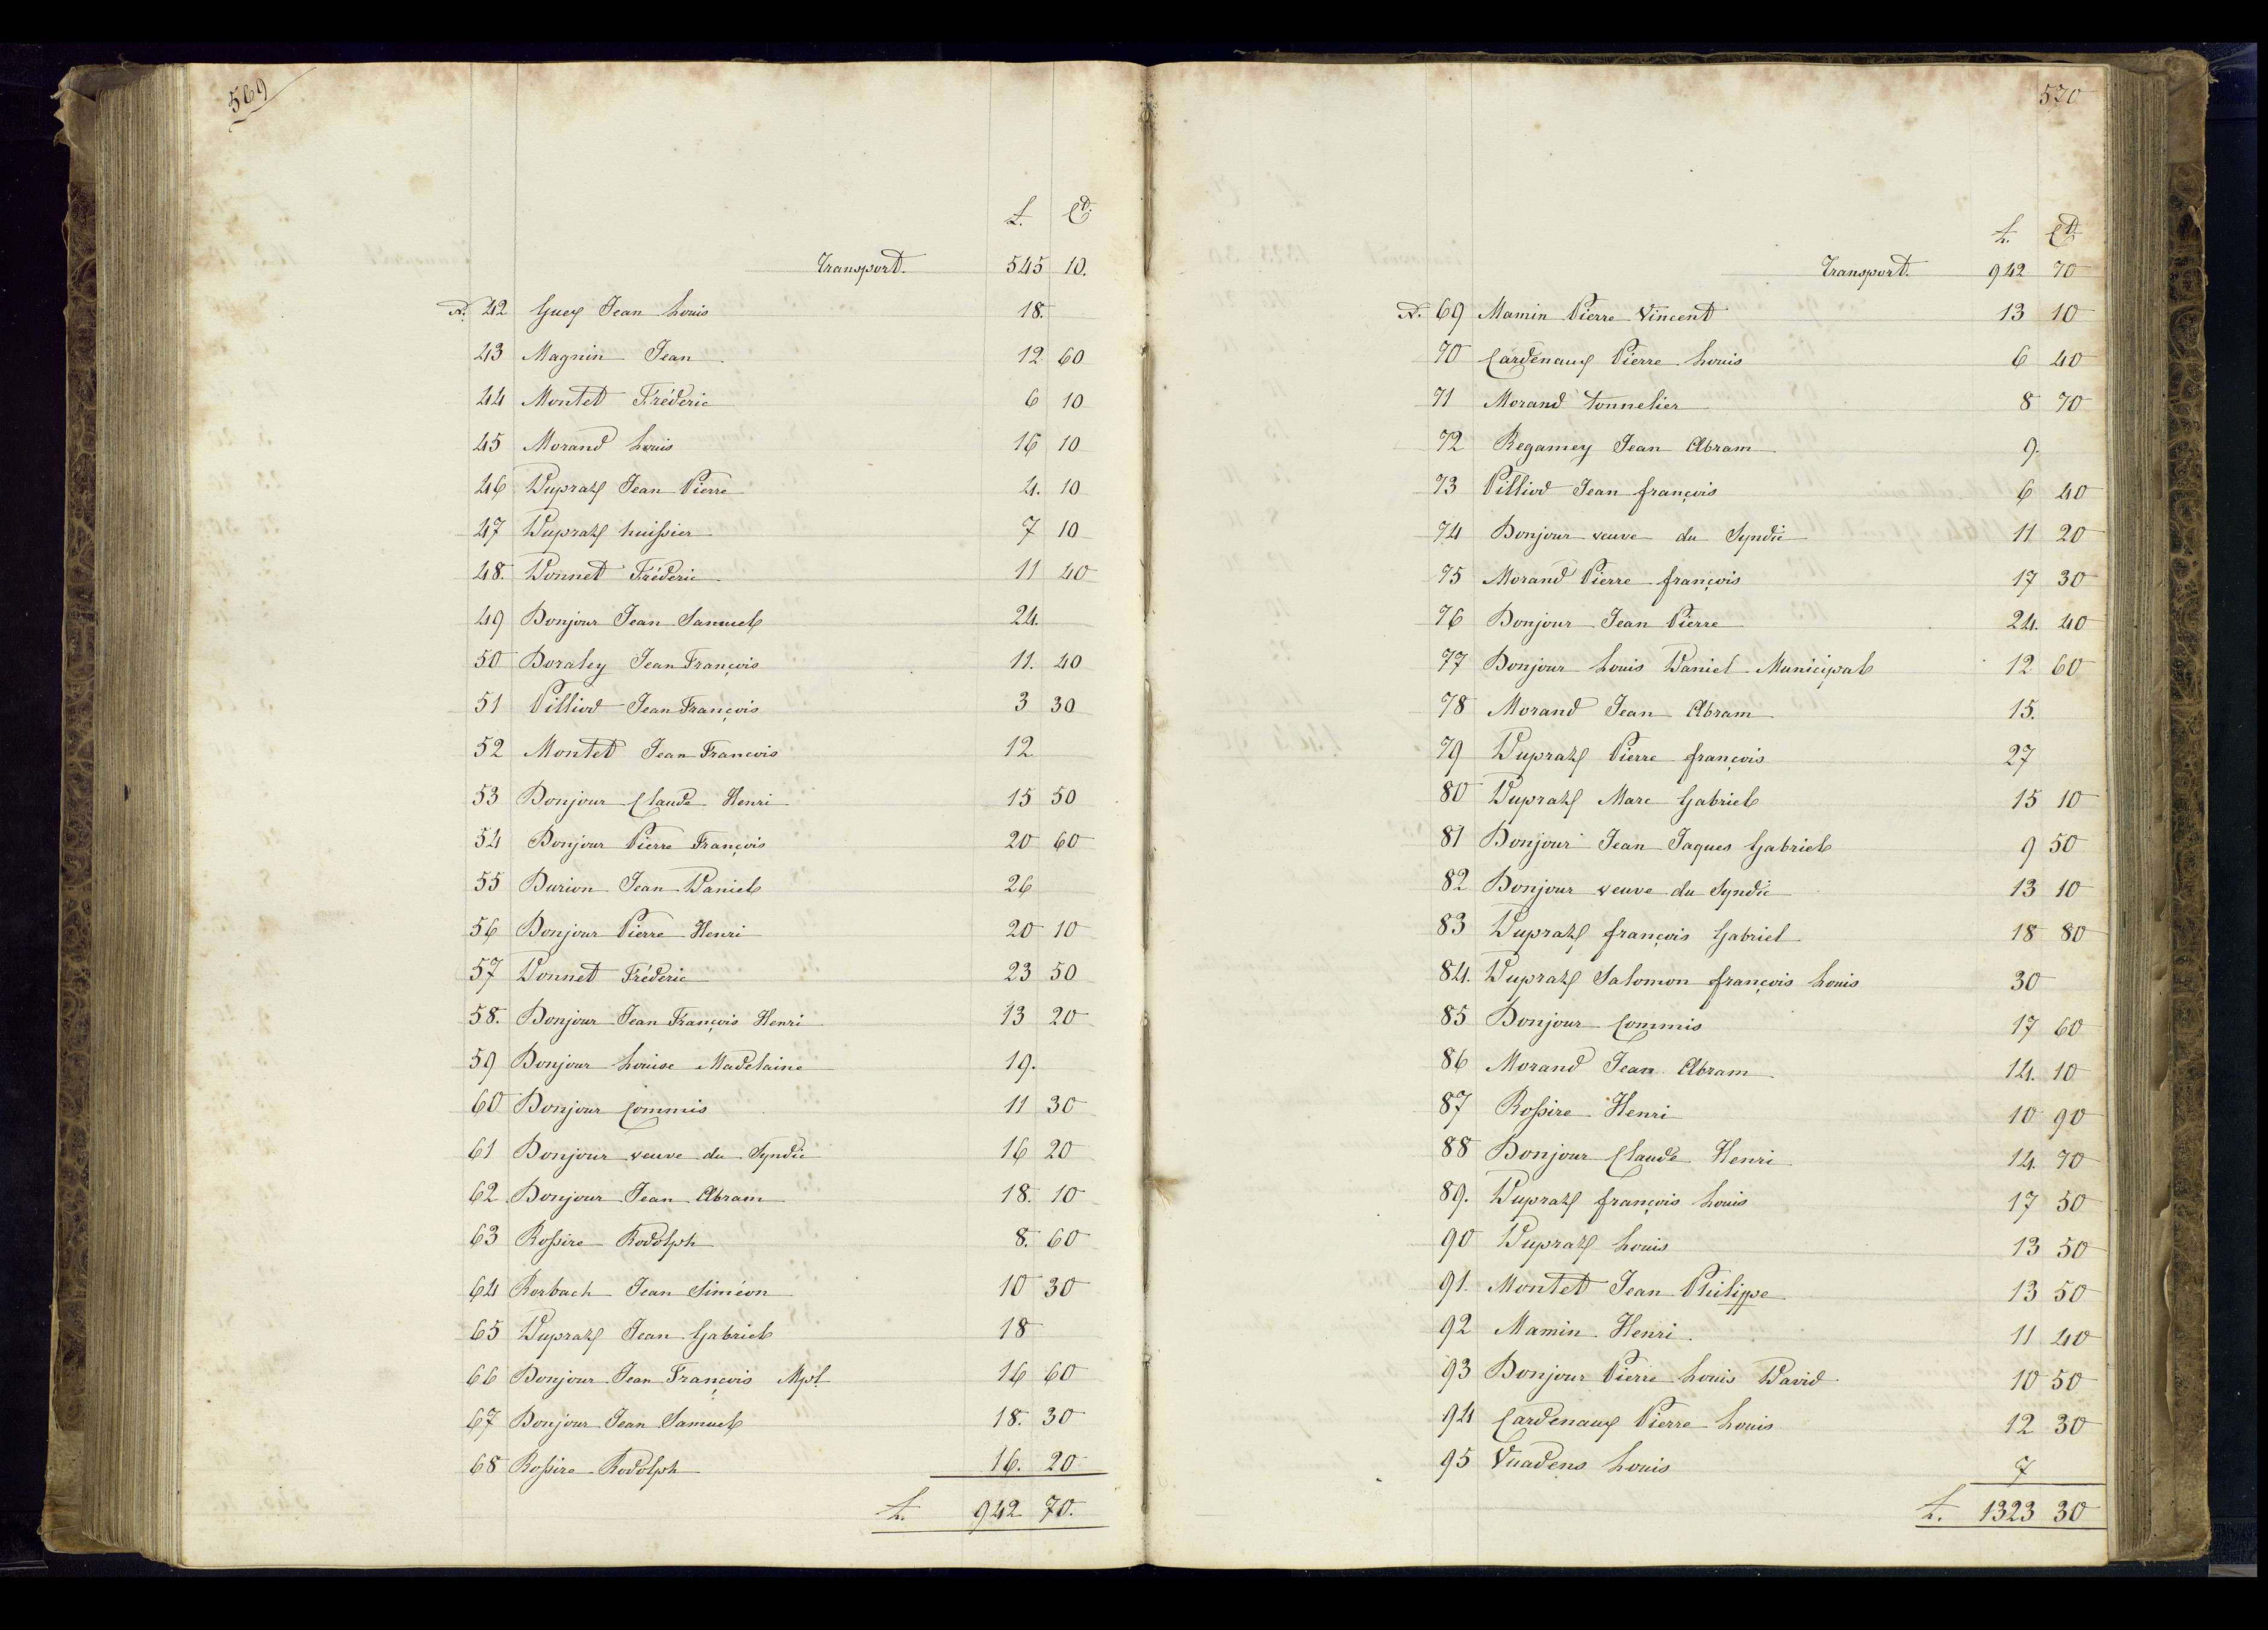 569
L. Ct.
Transport. 545 10.
N. 42 Guex Jean Louis 18.
43 Magnin Jean 12 60
44 Montet Fréderic 6 10
45 Morand Louis 16 10
46 Dupraz Jean Pierre 4. 10
47 Dupraz huissier 7 10
48. Donnet Fréderic 11 40
49 Bonjour Jean Samuel 24.
50 Boraley Jean François 11. 40
51 Pilliod Jean François 3 30
52 Montet Jean Francois 12
53 Bonjour Claude Henri 15 50
54 Bonjour Pierre François 20 60
55 Burion Jean Daniel 26
56 Bonjour Pierre Henri 20 10
57 Donnet Fréderic 23 50
58. Bonjour Jean François Henri 13 20
59 Bonjour Louise Madelaine 19.
60 Bonjour Commis 11 30
61 Bonjour veuve du Syndic 16 20
62 Bonjour Jean Abram 18. 10
63 Rossire Rodolph 8. 60
64 Rosbach Jean Siméon 10 30
65 Dupraz Jean Gabriel 18
66 Bonjour Jean François Mpl. 16 60
67 Bonjour Jean Samuel 18. 30
68 Rossire Rodolph 16. 20
L. 942 70.
570
L. Ct.
Transport. 942 70
N. 69 Mamin Pierre Vincent 13 10
70 Cardenaux Pierre Louis 6 40
71 Morand tonnelier 8 70
72 Regamey Jean Abram 9.
73 Pilliod Jean françois 6 40
74 Bonjour veuve du Syndic 11 20
75 Morand Pierre françois 17 30
76 Bonjour Jean Pierre 24. 40
77 Bonjour Louis Daniel Municipal 12 60
78 Morand Jean Abram 15.
79 Dupraz Pierre françois 27
80 Dupraz Marc Gabriel 15 10
81 Bonjour Jean Jaques Gabriel 9 50
82 Bonjour veuve du Syndic 13 10
83 Dupraz françois Gabriel 18 80
84. Dupraz Salomon françois Louis 30
85 Bonjour Commis 17 60
86 Morand Jean Abram 14. 10
87 Rossire Henri 10 90
88 Bonjour Claude Henri 14. 70
89. Dupraz françois Louis 17 50
90 Dupraz Louis 13 50
91. Montet Jean Philippe 13 50
92 Mamin Henri 11 40
93 Bonjour Pierre Louis David 10 50
94 Cardenaux Pierre Louis 12 30
95 Vuadens Louis 7
L. 1323 30